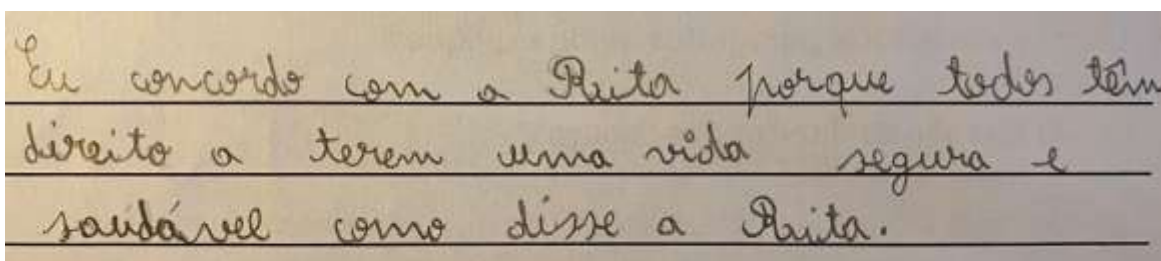 Eu concordo com a Rita porque todos têm
direito a terem uma vida segura e
saudável como disse a Rita.